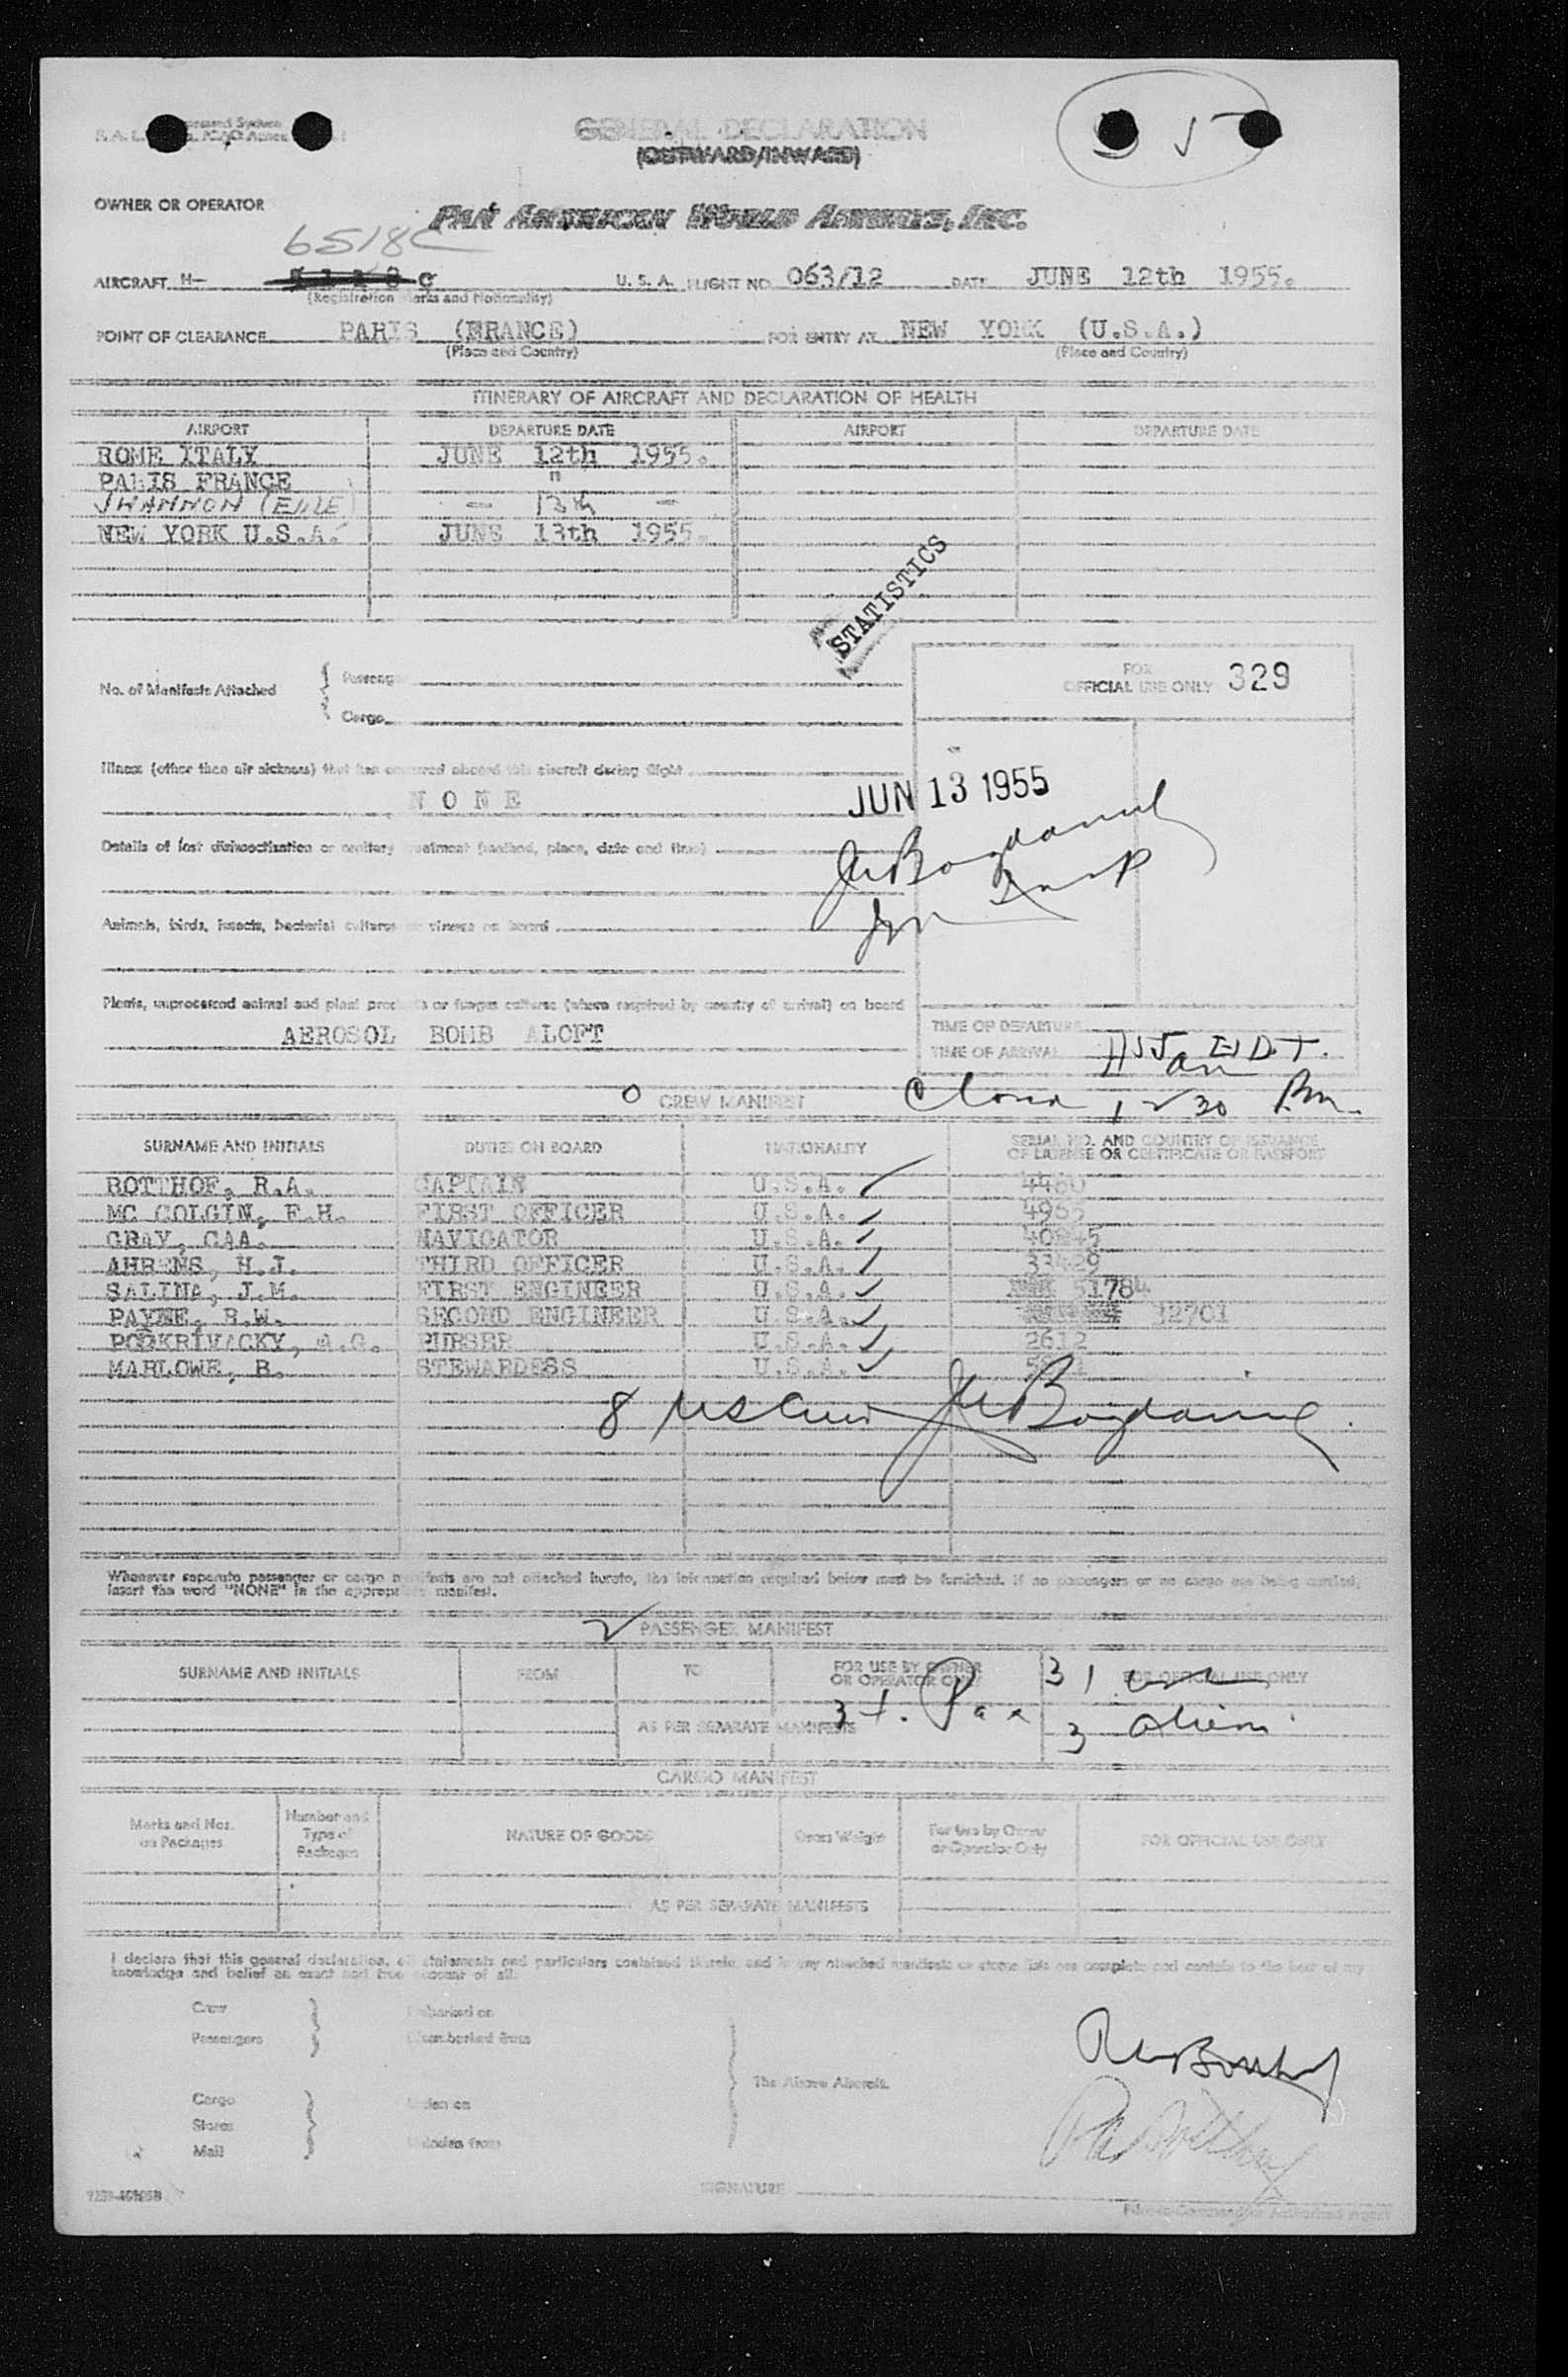 GENERAL DECLARATION
(OUTWARD/INWARD)
OWNER OR OPERATOR
PAN AMERICAN WORLD AIRWAYS, INC.
6518C
AIRCRAFT N- U. S. A. FLIGHT NO. 063/12 DATE JUNE 12th 1955.
(Registration Marks and Nationality)
POINT OF CLEARANCE PARIS (FRANCE) FOR ENTRY AT NEW YORK (U.S.A.)
(Place and Country) (Place and Country)
ITINERARY OF AIRCRAFT AND DECLARATION OF HEALTH
AIRPORT DEPARTURE DATE AIRPORT DEPARTURE DATE
ROME ITALY JUNE 12th 1955.
PARIS FRANCE "
SHANNON (EIRE) - 13th -
NEW YORK U.S.A. JUNE 13th 1955.
STATISTICS
No. of Manifests Attached
Cargo
FOR
OFFICIAL USE ONLY 329
Illness (other than air sickness) that has occurred aboard this aircraft during flight
NONE
JUN 13 1955
Details of last disinsectization or sanitary treatment (method, place, date and time)
Animals, birds, insects, bacterial cultures or viruses on board
Plants, unprocessed animal and plant products or fungus cultures (where required by country of arrival) on board
AEROSOL BOMB ALOFT
TIME OF DEPARTURE
TIME OF ARRIVAL E.D.T.
CREW MANIFEST
SURNAME AND INITIALS DUTIES ON BOARD NATIONALITY SERIAL NO. AND COUNTRY OF ISSUANCE
OF LICENSE OR CERTIFICATE OR PASSPORT
BOTTHOF, R.A. CAPTAIN U.S.A.
MC COLGIN, F.H. FIRST OFFICER U.S.A.
GRAY, CAA. NAVIGATOR U.S.A.
AHRENS, H.J. THIRD OFFICER U.S.A.
SALINA, J.M. FIRST ENGINEER U.S.A. 51784
PAYNE, R.W. SECOND ENGINEER U.S.A. 12701
PODKRIVACKY, A.G. PURSER U.S.A. 2612
MARLOWE, B. STEWARDESS U.S.A.
8 US Crew
Whenever separate passenger or cargo manifests are not attached hereto, the information required below must be furnished. If no passengers or no cargo are being carried,
insert the word "NONE" in the appropriate manifest.
PASSENGER MANIFEST
SURNAME AND INITIALS FROM TO FOR USE BY OWNER
OR OPERATOR ONLY FOR OFFICIAL USE ONLY
31
Pax
AS PER SEPARATE MANIFESTS 3 aliens
CARGO MANIFEST
Marks and Nos.
on Packages Number and
Type of
Packages NATURE OF GOODS Gross Weight For Use by Owner
or Operator Only FOR OFFICIAL USE ONLY
AS PER SEPARATE MANIFESTS
I declare that this general declaration, all statements and particulars contained therein, and in any attached manifests or stores lists are complete and contain to the best of my
knowledge and belief an exact and true account of all:
Crew Embarked on
Passengers Disembarked from
The Above Aircraft.
Cargo Laden on
Stores
Mail Unladen from
SIGNATURE